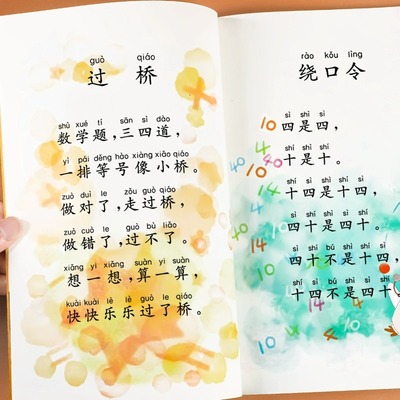 guò qiáo
过 桥
shù xué tí sān sì dào
数学题，三四道，
yì pái děng hào xiàng xiǎo qiáo
一排等号像小桥。
zuò duì le zǒu guò qiáo
做对了，走过桥，
zuò cuò le guò bù liǎo
做错了，过不了。
xiǎng yì xiǎng suàn yí suàn
想一想，算一算，
kuài kuài lè lè guò le qiáo
快快乐乐过了桥。
rào kǒu lìng
绕口令
sì shì sì
四是四，
shí shì shí
十是十。
shí sì shì shí sì
十四是十四，
sì shí shì sì shí
四十是四十。
sì shí bú shì shí sì
四十不是十四，
shí sì bú shì sì shí
十四不是四十